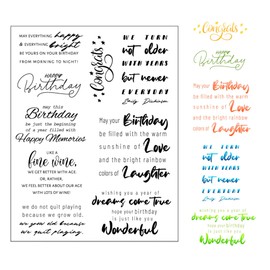 MAY EVERYTHING happy
& EVERYTHING bright
BE YOURS ON YOUR BIRTHDAY
FROM MORNING TO NIGHT!
Happy
Birthday
may this
Birthday
be just the beginning
of a year filled with
Happy Memories
LIKE a
fine wine,
WE GET BETTER WITH AGE
OR, RATHER,
WE FEEL BETTER ABOUT OUR AGE
WITH LOTS OF WINE!
we do not quit playing
because we grow old.
we grow old because
we quit playing.
Congrats
WE TURN
not older
WITH YEARS
but newer
EVERYDAY
Emily Dickinson
May your Birthday
be filled with the warm
sunshine of Love
and the bright rainbow
colors of Laughter
wishing you a year of
dreams come true
hope your birthday
is just like you
Wonderful
Congrats
Happy
Birthday
May your Birthday
be filled with the warm
sunshine of Love
and the bright rainbow
colors of Laughter
WE TURN
not older
WITH YEARS
but newer
EVERYDAY
Emily Dickinson
wishing you a year of
dreams come true
hope your birthday
is just like you
Wonderful